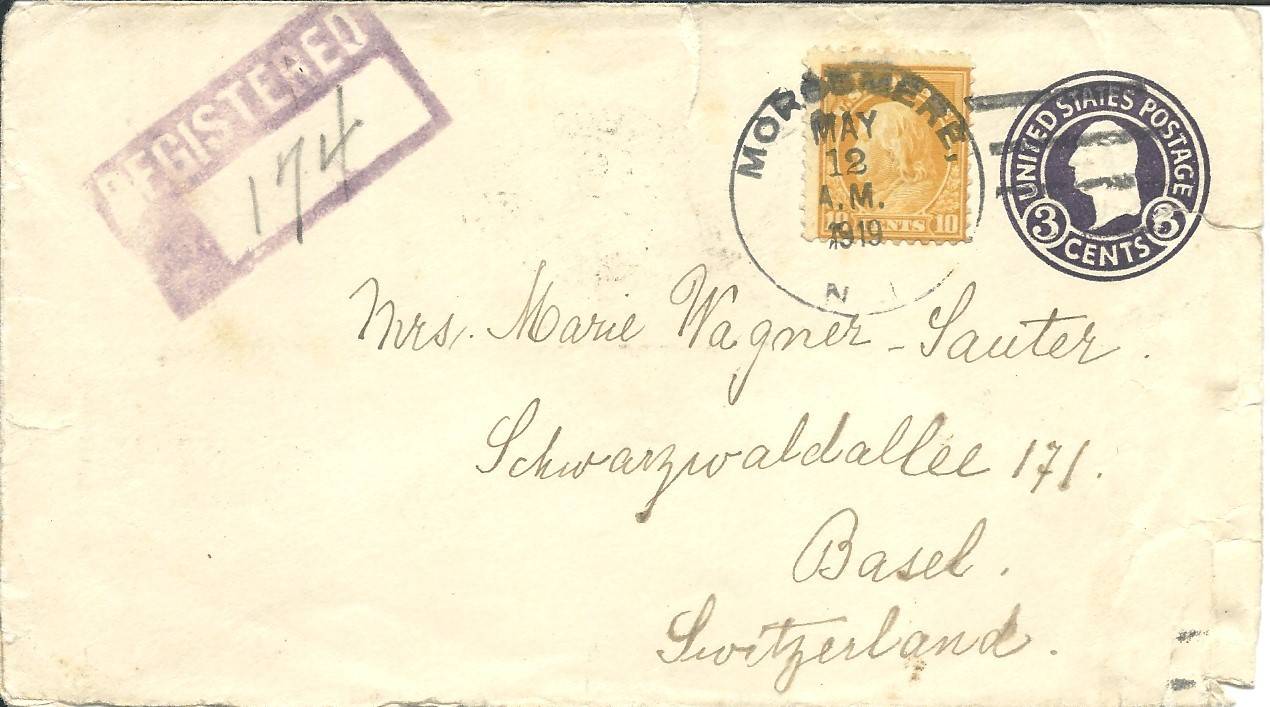 REGISTERED
174
MORSEMERE,
MAY
12
A.M.
1919
N
10 CENTS 10
UNITED STATES POSTAGE
3 CENTS 3
Mrs. Marie Wagner-Sauter.
Schwarzwaldallee 171.
Basel.
Switzerland.